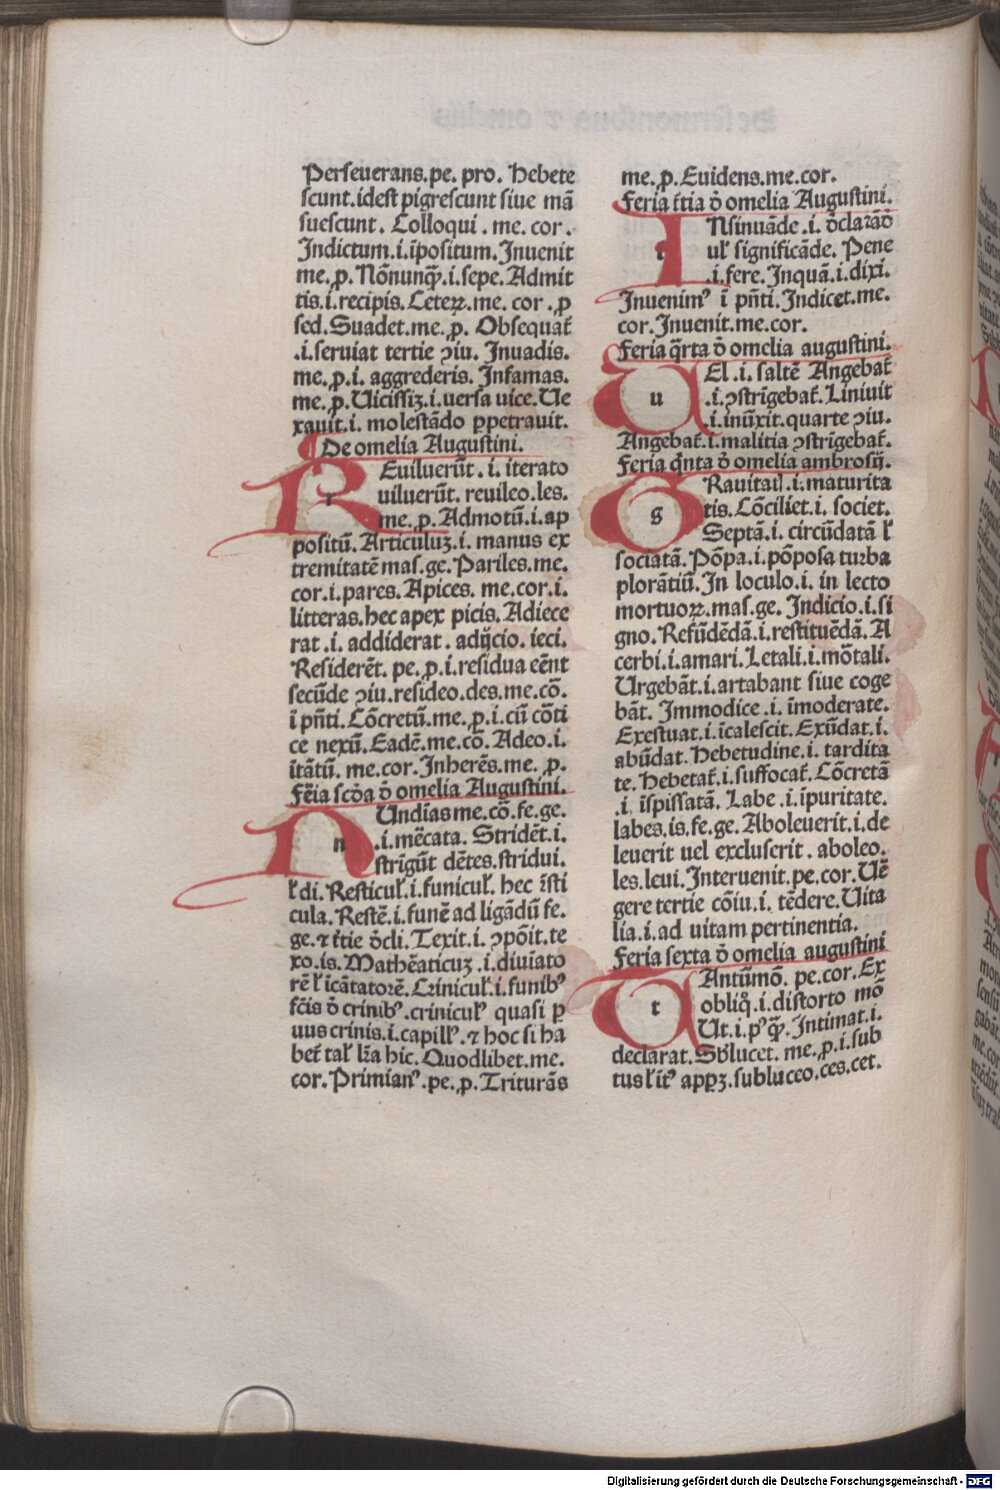 Perseuerans.pe. pro. Hebete
scunt.idest pigrescunt siue mã
suescunt. Colloqui. me. cor.
Indictum.i.ĩpositum.Inuenit
me.p̱. Nõnunqꝫ̃.i.sepe. Admit
tis.i.recipis. Ceteꝝ.me. cor. p̱
sed. Suadet.me. p̱. Obsequat̃
.i.seruiat tertie ꝯiu. Inuadis.
me.p̱.i. aggrederis. Infamas.
me. p̱. Uicissiꝫ.i.uersa uice. Ue
xauit.i. molestãdo p̱petrauit.
De omelia Augustini.
REuiluerũt.i. iterato
uiluerũt. reuileo.les.
me. p̱. Admotũ.i.ap
positũ. Articuluꝫ.i. manus ex
tremitatẽ mas.ge. Pariles.me.
cor.i.pares. Apices. me.cor.i.
litteras.hec apex picis. Adiece
rat.i. addiderat. adijcio. ieci.
Residerẽt. pe. p̱.i.residua eẽnt
secũde ꝯiu.resideo.des.me.cõ.
ĩ pñti. Cõcretũ.me. p̱.i.cũ cõti
ce nexũ. Eadẽ.me.cõ. Adeo.i.
itãtũ. me.cor. Inherẽs.me. p̱.
Fẽia scða õ omelia Augustini.
NUndĩas me.cõ.fe.ge.
.i.mẽcata. Stridẽt.i.
strĩgũt dẽtes.stridui.
ł di. Resticuł.i.funicuł. hec r̃sti
cula. Restẽ.i.funẽ ad ligãdũ fe.
ge.⁊ t̃tie õcli. Texit.i. ꝯpõit.te
xo.is. Mathẽaticuꝫ.i.diuiato
rẽ ł ĩcãtatorẽ. Crinicuł.i.funibꝰ
fc̃is õ crinibꝰ.crinicuł quasi p̱
uus crinis.i.capillꝰ.⁊ hoc si ha
bet̃ tał lr̃a hic. Quodlibet.me.
cor. Primianꝰ.pe. p̱. Triturãs
me. p̱. Euidens.me.cor.
Feria t̃tia õ omelia Augustini.
INsinuãde.i. õclarãõ
uł significãde. Pene
.i.fere. Inquã.i.dixi.
Inuenimꝰ ĩ pñti. Indicet.me.
cor. Inuenit.me.cor.
Feria q̃rta õ omelia augustini.
UEl.i. saltẽ Angebat̃
.i.ꝯstrĩgebat̃. Liniuit
.i.inũxit.quarte ꝯiu.
Angebat̃.i.malitia ꝯstrĩgebat̃.
Feria q̃nta õ omelia ambrosij.
GRauitatĩ.i.maturita
tis. Cõciliet.i. societ.
Septã.i. circũdatã ł
sociatã. Põpa.i.põposa turba
plorãtiũ. In loculo.i. in lecto
mortuoꝝ.mas.ge. Indicio.i.si
gno. Refũdẽdã.i.restituẽdã. A
cerbi.i.amari. Letali.i.mõtali.
Urgebãt.i.artabant siue coge
bãt. Immodice.i. ĩmoderate.
Exestuat.i.ĩcalescit. Exũdat.i.
abũdat. Hebetudine.i. tardita
te. Hebetat̃.i.suffocat̃. Cõcretã
.i. ĩspissatã. Labe.i.ĩpuritate.
labes.is.fe.ge. Aboleuerit.i.de
leuerit uel excluserit. aboleo.
les.leui. Interuenit.pe.cor. Uẽ
gere tertie cõiu.i. tẽdere. Uita
lia.i.ad uitam pertinentia.
Feria sexta õ omelia augustini
TAntũmõ. pe.cor. Ex
obliq̊.i.distorto mõ
Ut.i.pꝰqꝫ̃. Intimat.i.
declarat. Sb̃lucet. me. p̱.i.sub
tus ł ĩt̃ꝰ apꝑꝫ.subluceo.ces.cet.
Digitalisierung gefördert durch die Deutsche Forschungsgemeinschaft - DFG